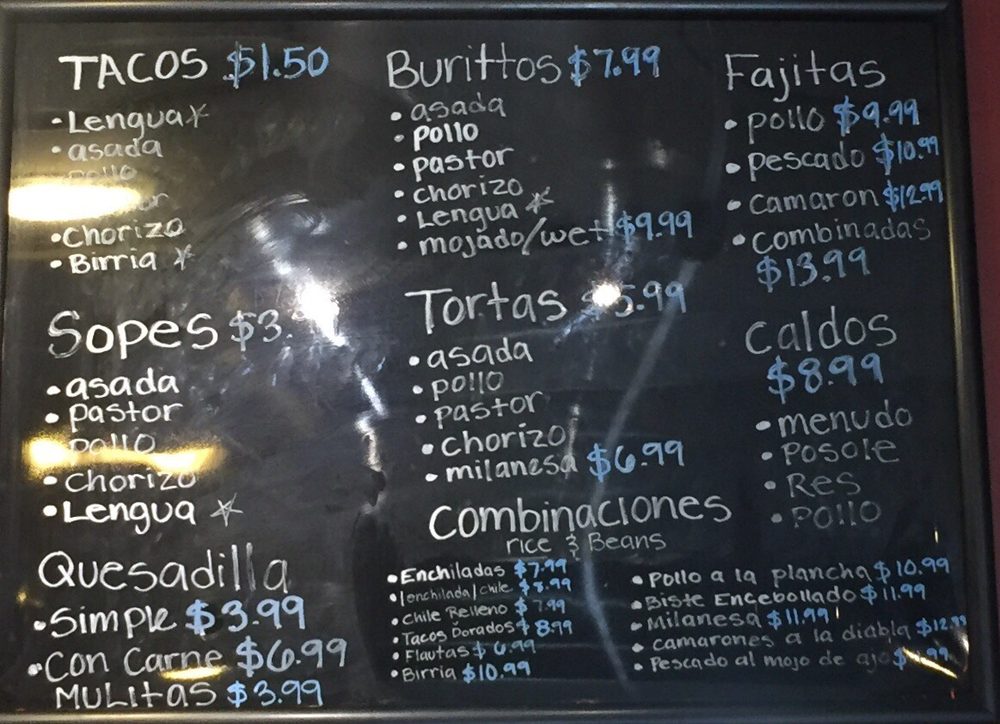 TACOS $1.50
• Lengua ☆
• asada
pollo
• Chorizo
• Birria ☆
Sopes $3.
• asada
• Pastor
• pollo
• Chorizo
• Lengua ☆
Quesadilla
• Simple $3.99
• Con Carne $6.99
MULItAS $3.99
Burittos $7.99
• asada
• pollo
• pastor
• chorizo
• Lengua ☆
• mojado/wet $9.99
Tortas $5.99
• asada
• pollo
• pastor
• chorizo
• milanesa $6.99
Fajitas
• pollo $9.99
• pescado $10.99
• camaron $12.99
• combinadas
$13.99
caldos
$8.99
• menudo
• Posole
• Res
• Pollo
combinaciones
rice & Beans
• Enchiladas $7.99
• 1enchilada/chile $8.99
• chile Relleno $7.99
• Tacos Dorados $8.99
• Flautas $6.99
• Birria $10.99
• Pollo a la plancha $10.99
• Biste Encebollado $11.99
• Milanesa $11.99
• camarones a la diabla $12.99
• Pescado al mojo de ajo